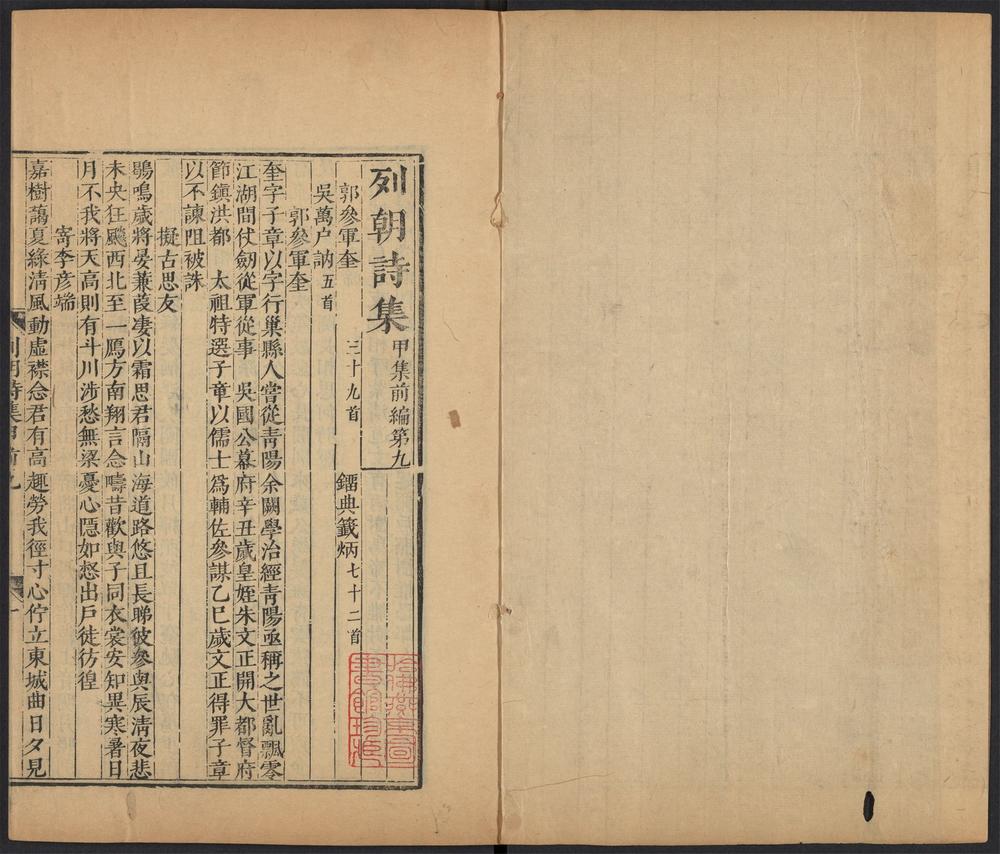 列朝詩集 甲集前編第九
郭參軍奎 三十九首 鐂典籤炳 七十二首
吳萬户訥 五首
郭參軍奎
奎字子章以字行巢縣人嘗從靑陽余闕學治經靑陽亟稱之世亂飄零
江湖間仗劒從軍從事 吳國公幕府辛丑歲皇姪朱文正開大都督府
節鎭洪都 太祖特選子章以儒士爲輔佐參謀乙巳歲文正得罪子章
以不諫阻被誅
擬古思友
鶗鳴歲將晏蒹葭凄以霜思君隔山海道路悠且長睇彼參與辰淸夜悲
未央狂飇西北至一鴈方南翔言念疇昔歡與子同衣裳安知異寒暑日
月不我將天高則有斗川涉愁無梁憂心隱如惄出戶徒彷徨
寄李彥端
嘉樹藹夏綠淸風動虛襟念君有高趣勞我徑寸心佇立東城曲日夕見
列朝詩集甲前九 一
哈佛燕京圖書館珍藏